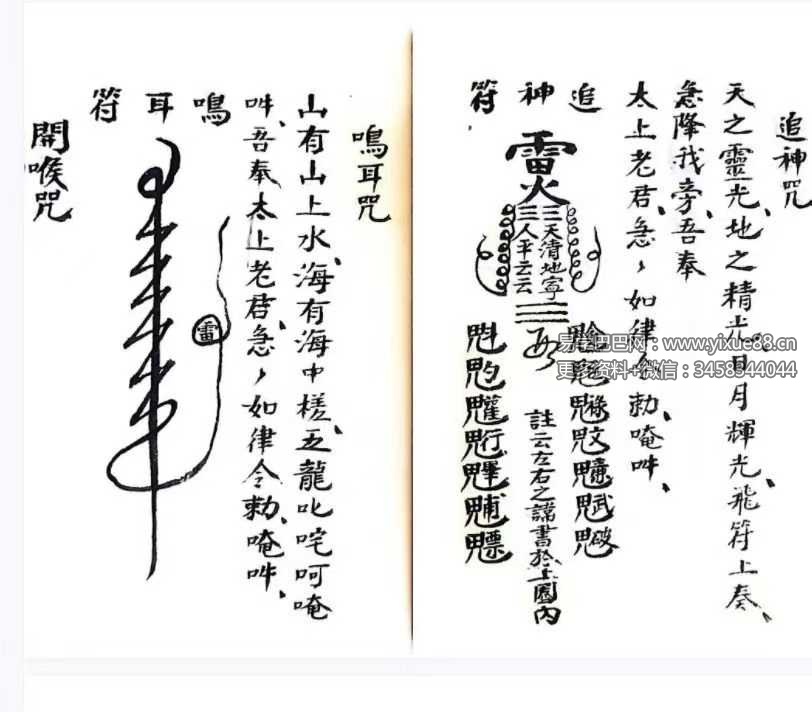 追神咒
天之靈光、地之精光、日月輝光、飛符上奏、
急降我旁、吾奉
太上老君、急々如律令勅、唵吽、
追神符
雷火
三天清地寧
三人平云云
註云左右之諱書於上圈內
鳴耳咒
山有山上水、海有海中槎、五龍叱咤呵唵
吽、吾奉太上老君、急々如律令勅、唵吽、
鳴耳符
雷
開喉咒
易学巴巴网：www.yixue88.cn
更多资料+微信：3458344044